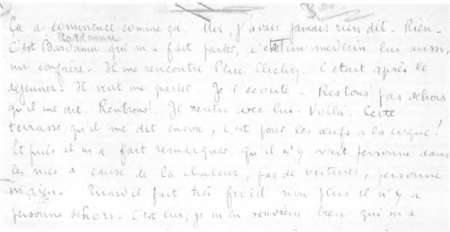 Ça a commencé comme ça. Moi, j'avais jamais rien dit. Rien.
Bardamu
C'est Bardamu qui m'a fait parler, c'était un médecin lui aussi,
un confrère. Il me rencontre Place Clichy. C'était après le
déjeuner. Il veut me parler. Je l'écoute. Restons pas dehors
qu'il me dit. Rentrons! Je rentre avec lui. Voilà. Cette
terrasse, qu'il me dit encore, c'est pour les œufs à la coque!
Et puis il m'a fait remarquer qu'il n'y avait personne dans
les rues à cause de la chaleur, pas de voitures, personne
Quand il fait très froid non plus il n'y a
personne dehors. C'est lui, je m'en souviens bien qui m'a